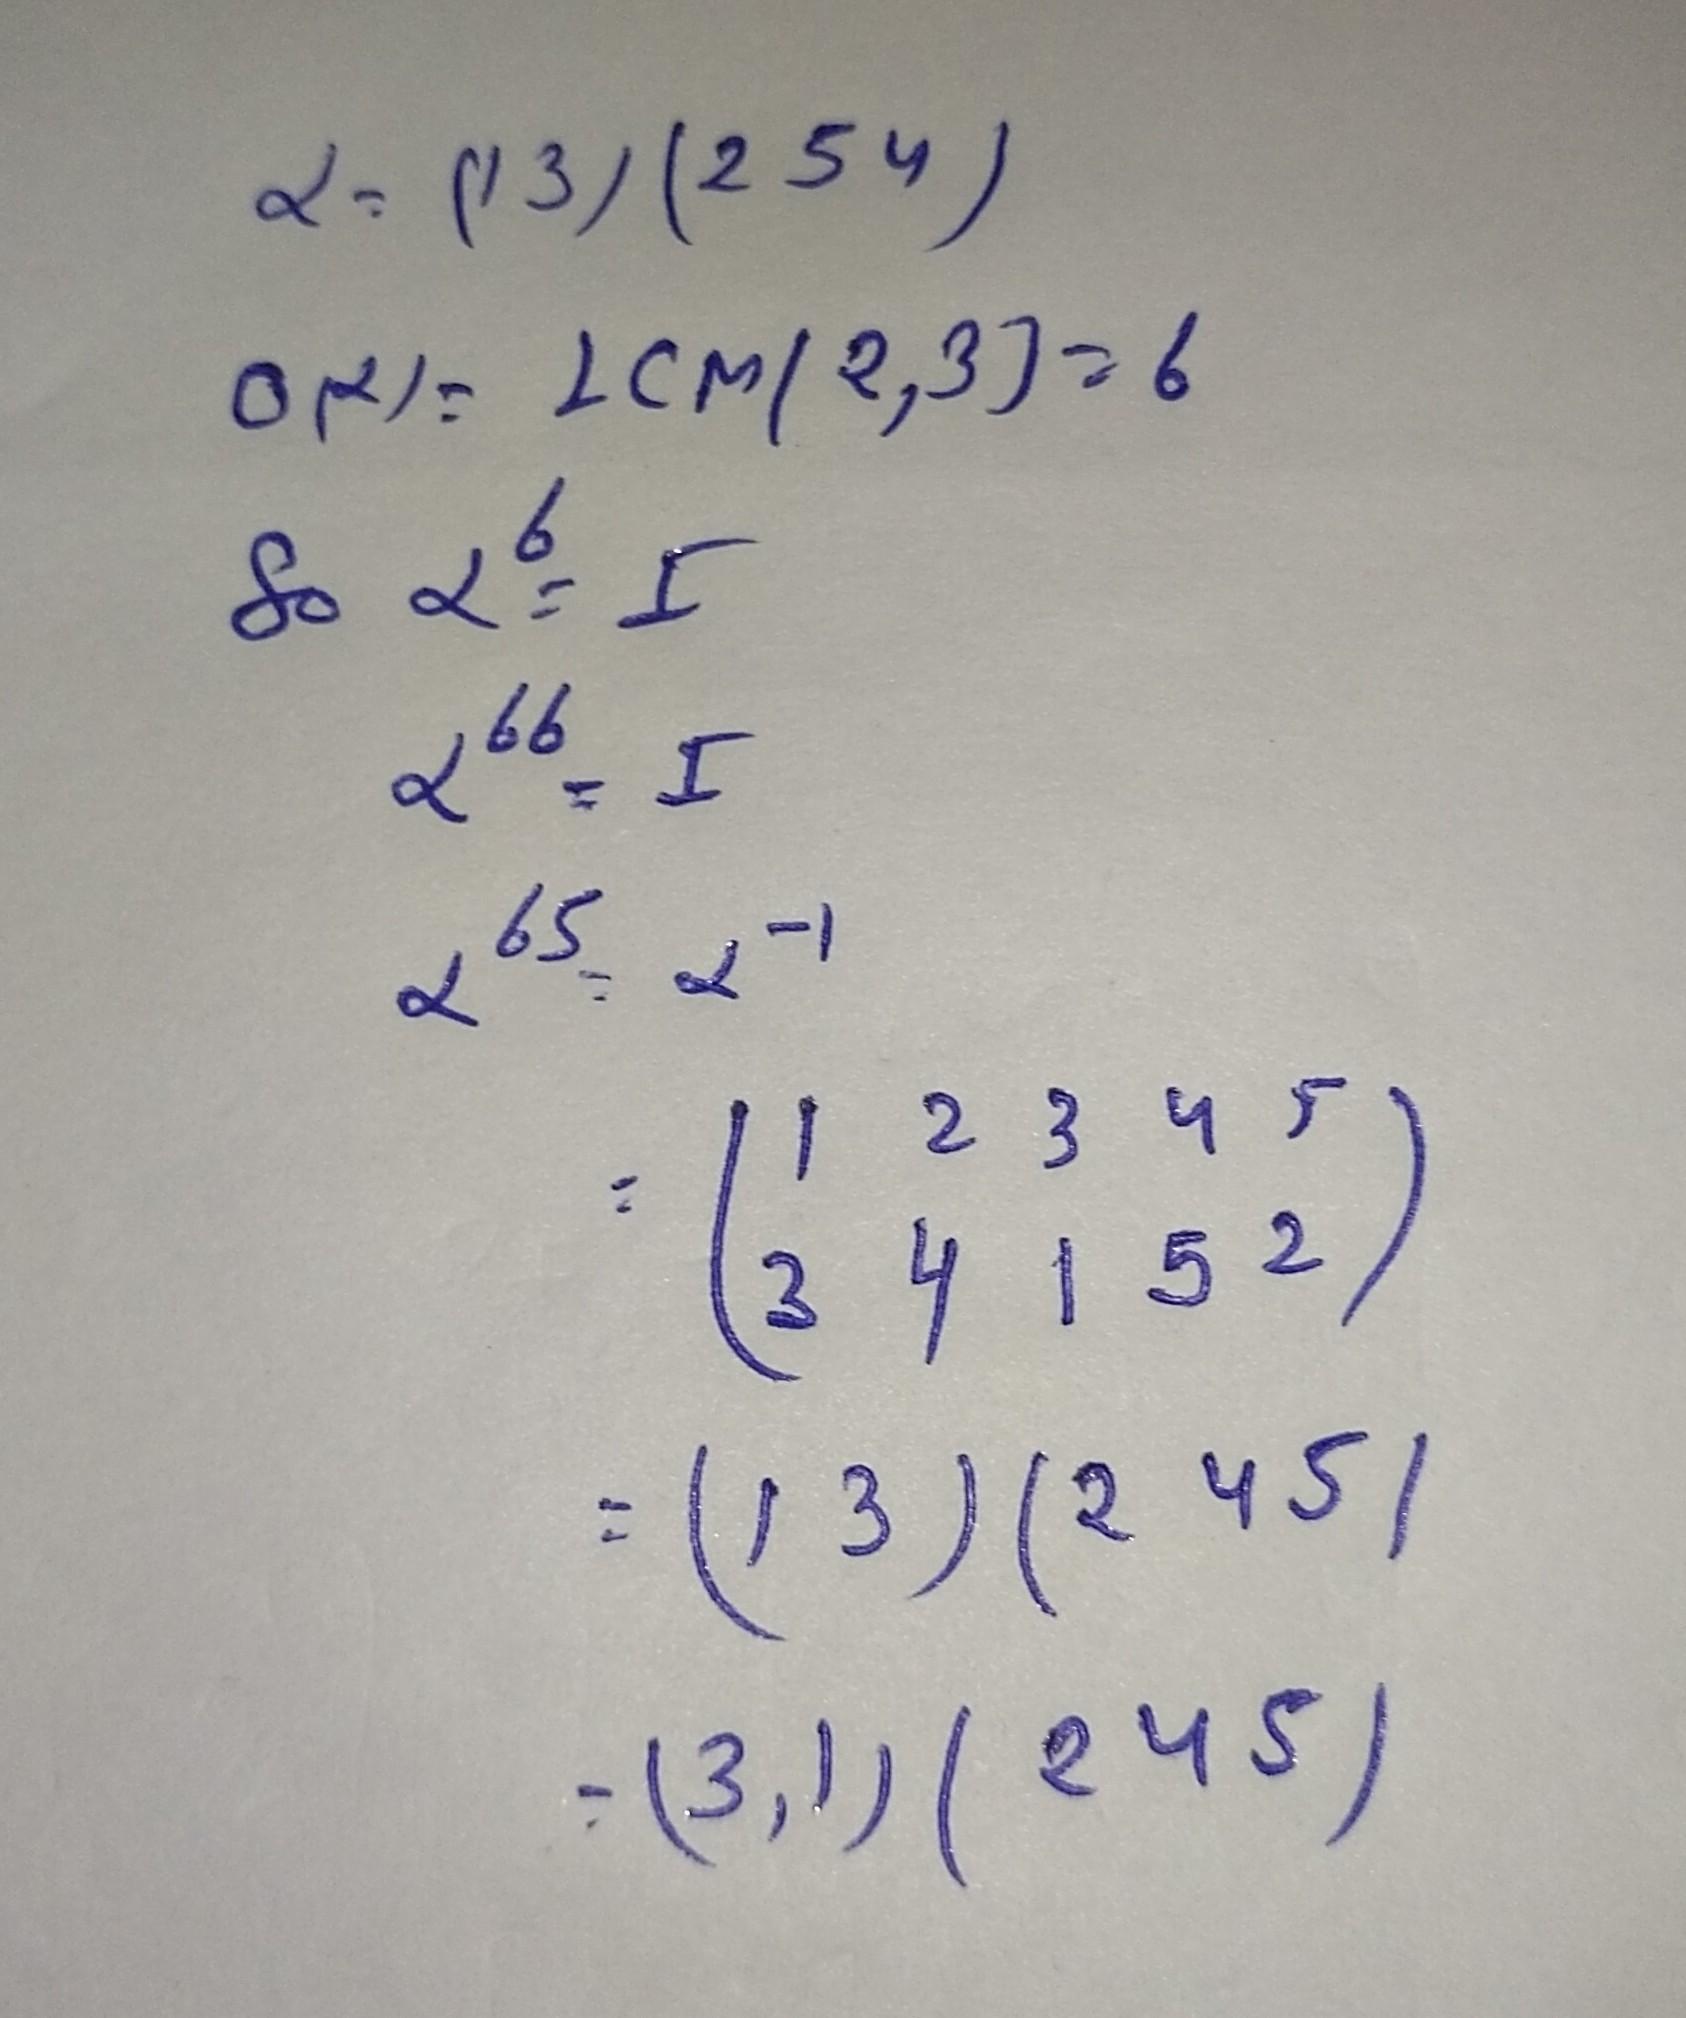 α = (1 3) (2 5 4)
O(α) = LCM[2,3] = 6
So α^6 = I
α^66 = I
α^65 = α^-1
= (1 2 3 4 5
3 4 1 5 2)
= (1 3) (2 4 5)
= (3,1) (2 4 5)